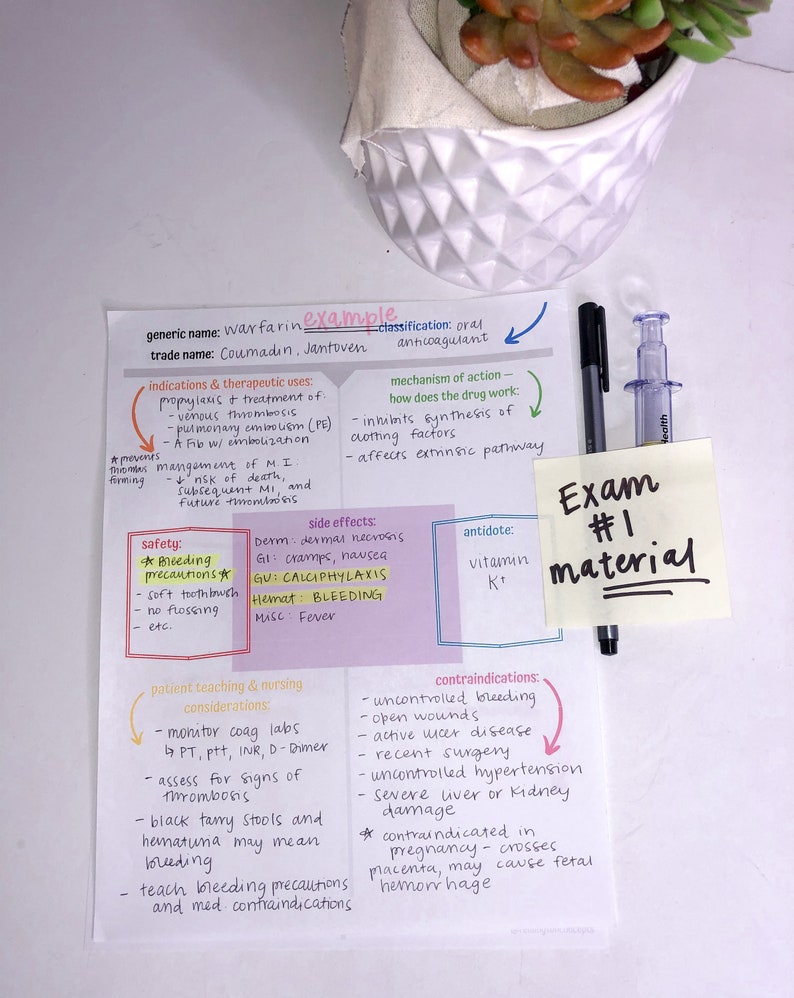 example
generic name: warfarin
classification: oral
anticoagulant
trade name: Coumadin, Jantoven
indications & therapeutic uses:
propylaxis & treatment of:
- venous thrombosis
- pulmonary embolism (PE)
- A Fib w/ embolization
☆ prevents
thrombus
forming
mangement of M.I.
- ↓ risk of death,
subsequent MI, and
future thrombosis
mechanism of action —
how does the drug work:
- inhibits synthesis of
clotting factors
- affects extrinsic pathway
safety:
☆ Bleeding
precautions ☆
- soft toothbrush
- no flossing
- etc.
side effects:
Derm: dermal necrosis
GI: cramps, nausea
GU: CALCIPHYLAXIS
Hemat: BLEEDING
Misc: Fever
antidote:
vitamin
K+
Health
Exam
#1
material
patient teaching & nursing
considerations:
- monitor coag labs
↳ PT, ptt, INR, D-Dimer
- assess for signs of
thrombosis
- black tarry stools and
hematuria may mean
bleeding
- teach bleeding precautions
and med. contraindications
contraindications:
- uncontrolled bleeding
- open wounds
- active ulcer disease
- recent surgery
- uncontrolled hypertension
- severe liver or kidney
damage
☆ contraindicated in
pregnancy - crosses
placenta, may cause fetal
hemorrhage